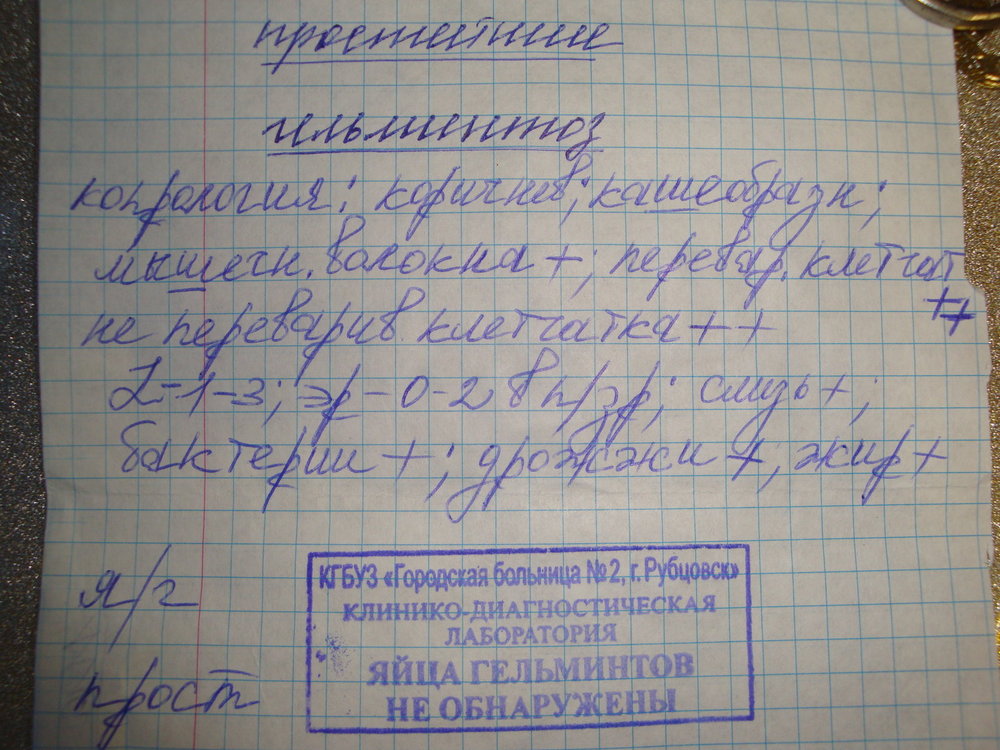 простейшие
гельминтоз
копрология: коричнев; кашеобразн;
мышечн. волокна +; перевар. клетчат
++
не перевари в клетчатка ++
L-1-3; эр-0-2 в п/зр; слизь +;
бактерии +; дрожжи +; жир +
я/г
прост
КГБУЗ «Городская больница №2, г. Рубцовск»
КЛИНИКО-ДИАГНОСТИЧЕСКАЯ
ЛАБОРАТОРИЯ
ЯЙЦА ГЕЛЬМИНТОВ
НЕ ОБНАРУЖЕНЫ